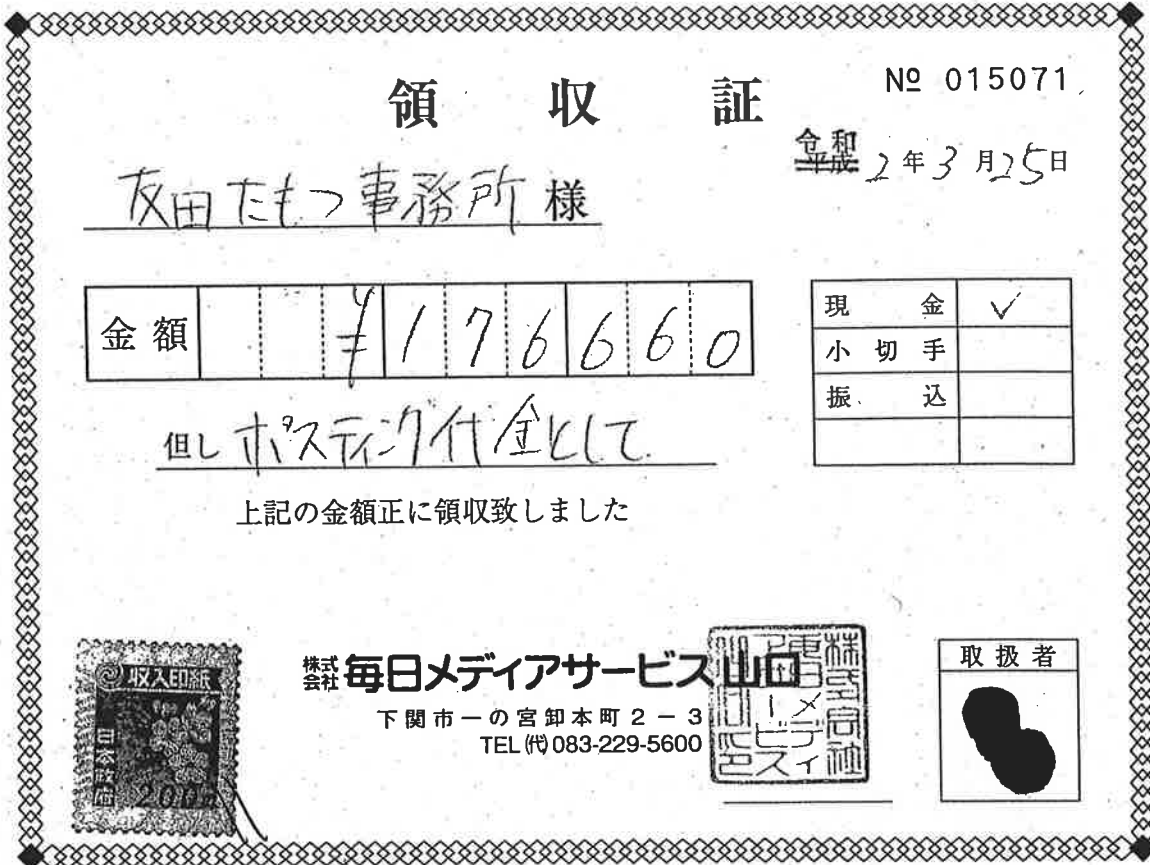 領収証
№ 015071
令和
平成 2年3月25日
友田たもつ事務所 様
金額 ¥176660
現金 ✓
小切手
振込
但し ポスティング代金として
上記の金額正に領収致しました
収入印紙
日本政府
200円
株式会社 毎日メディアサービス山口
下関市一の宮卸本町2-3
TEL(代)083-229-5600
株式会社
毎日メディ
アサービス
山口之印
取扱者